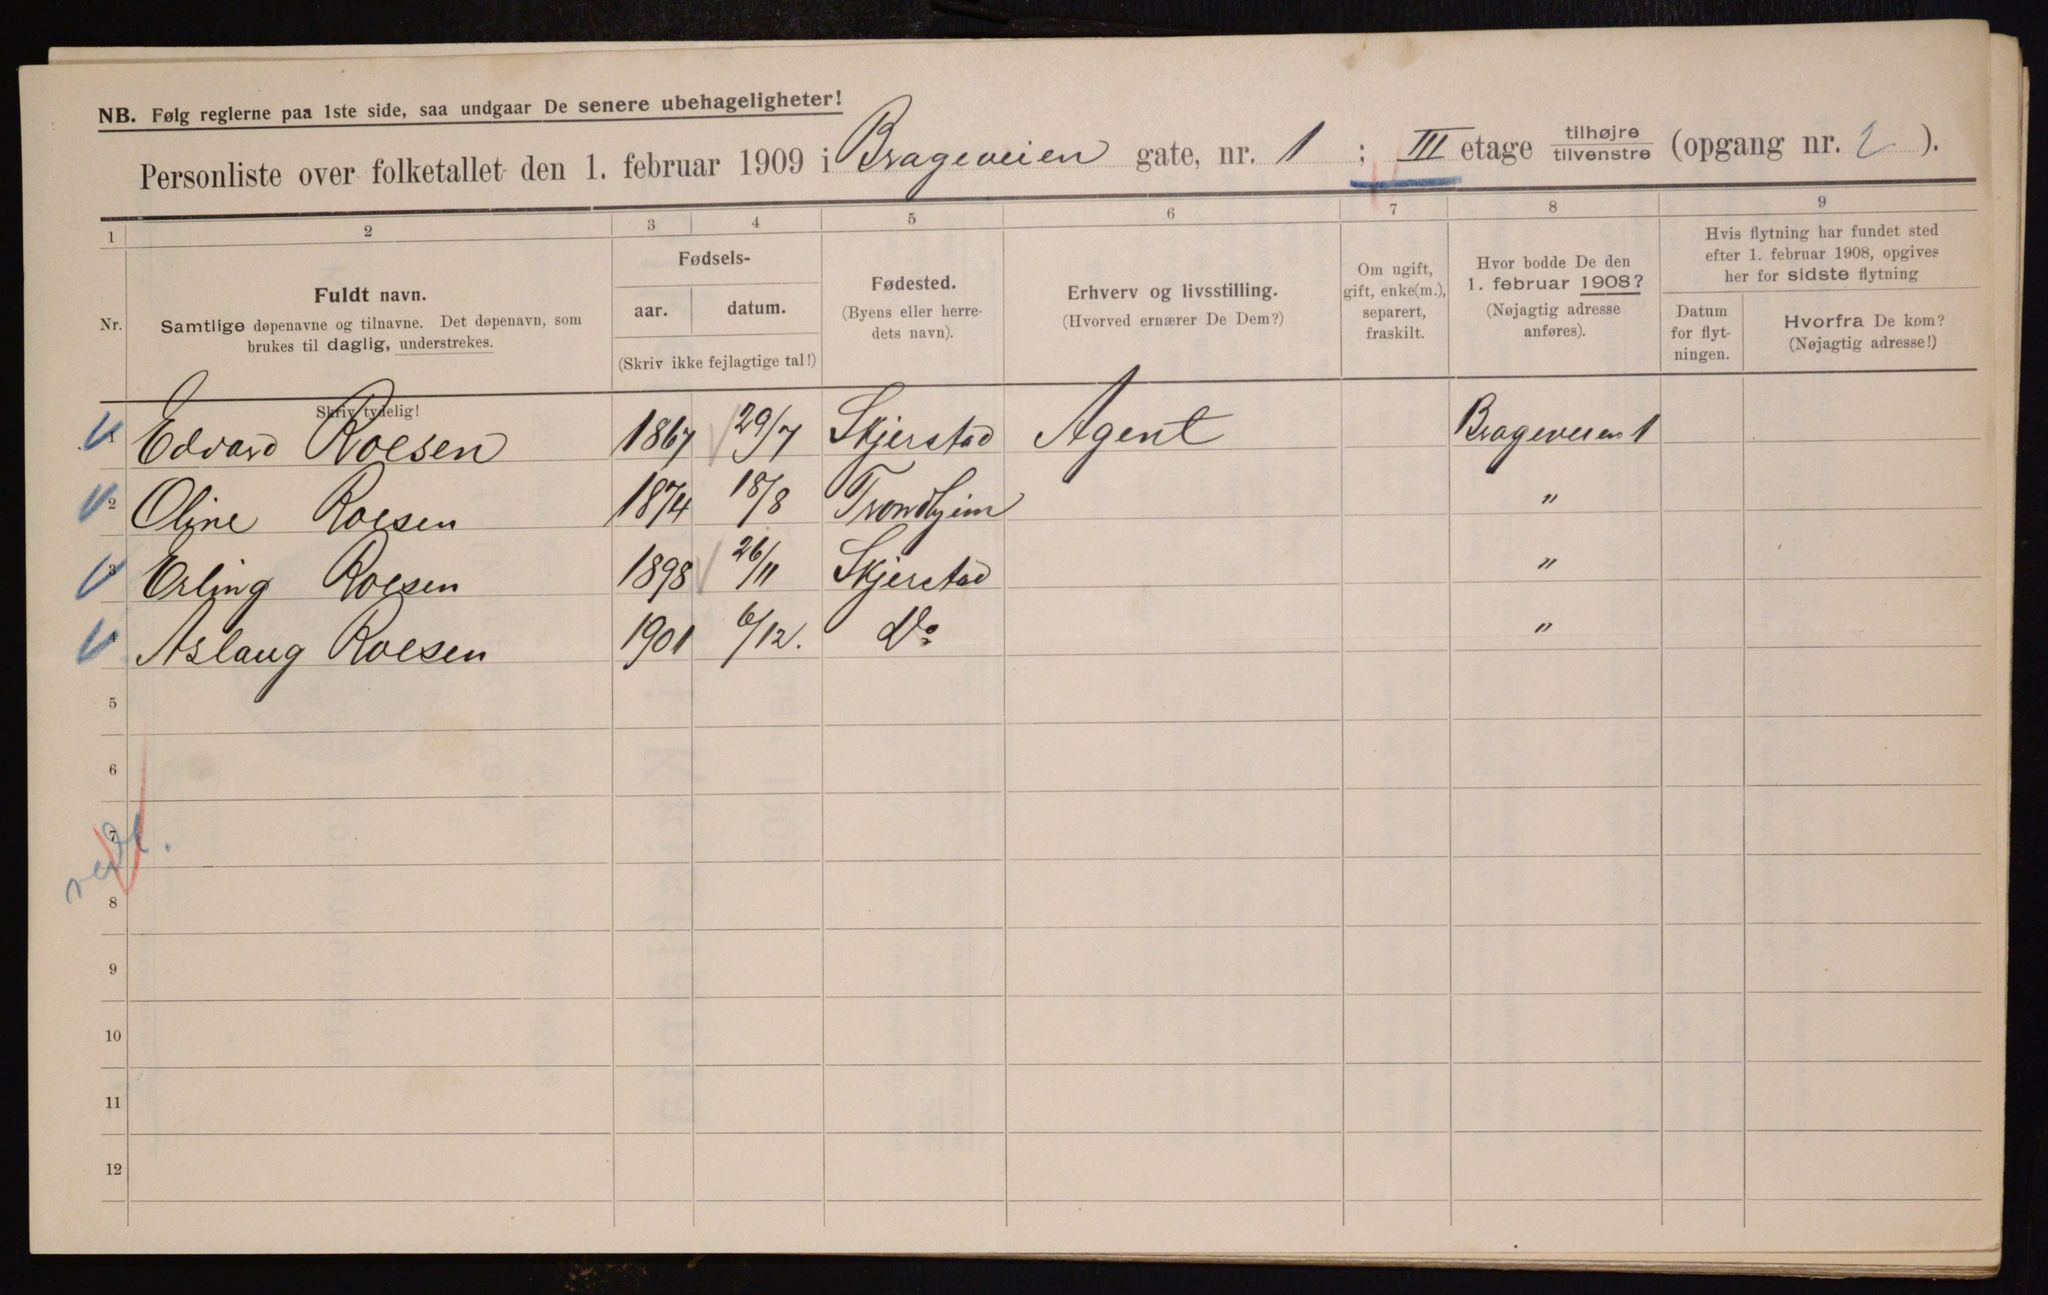 NB. Følg reglerne paa 1ste side, saa undgaar De senere ubehageligheter!
Personliste over folketallet den 1. februar 1909 i Brageveien gate, nr. 1 ; III etage tilhøjre/tilvenstre (opgang nr. 2 ).
1 2 3 4 5 6 7 8 9
Nr.
Fuldt navn.
Samtlige døpenavne og tilnavne. Det døpenavn, som
brukes til daglig, understrekes.
Skriv tydelig!
Fødsels-
aar. datum.
(Skriv ikke fejlagtige tal!)
Fødested.
(Byens eller herre-
dets navn).
Erhverv og livsstilling.
(Hvorved ernærer De Dem?)
Om ugift,
gift, enke(m.),
separert,
fraskilt.
Hvor bodde De den
1. februar 1908?
(Nøjagtig adresse
anføres).
Hvis flytning har fundet sted
efter 1. februar 1908, opgives
her for sidste flytning
Datum
for flyt-
ningen.
Hvorfra De kom?
(Nøjagtig adresse!)
1 Edvard Roesen 1867 29/7 Skjerstad Agent Brageveien 1
2 Oline Roesen 1874 18/8 Trondhjem "
3 Erling Roesen 1898 26/11 Skjerstad "
4 Aslaug Roesen 1901 6/12. Do "
5
6
7
8
9
10
11
12